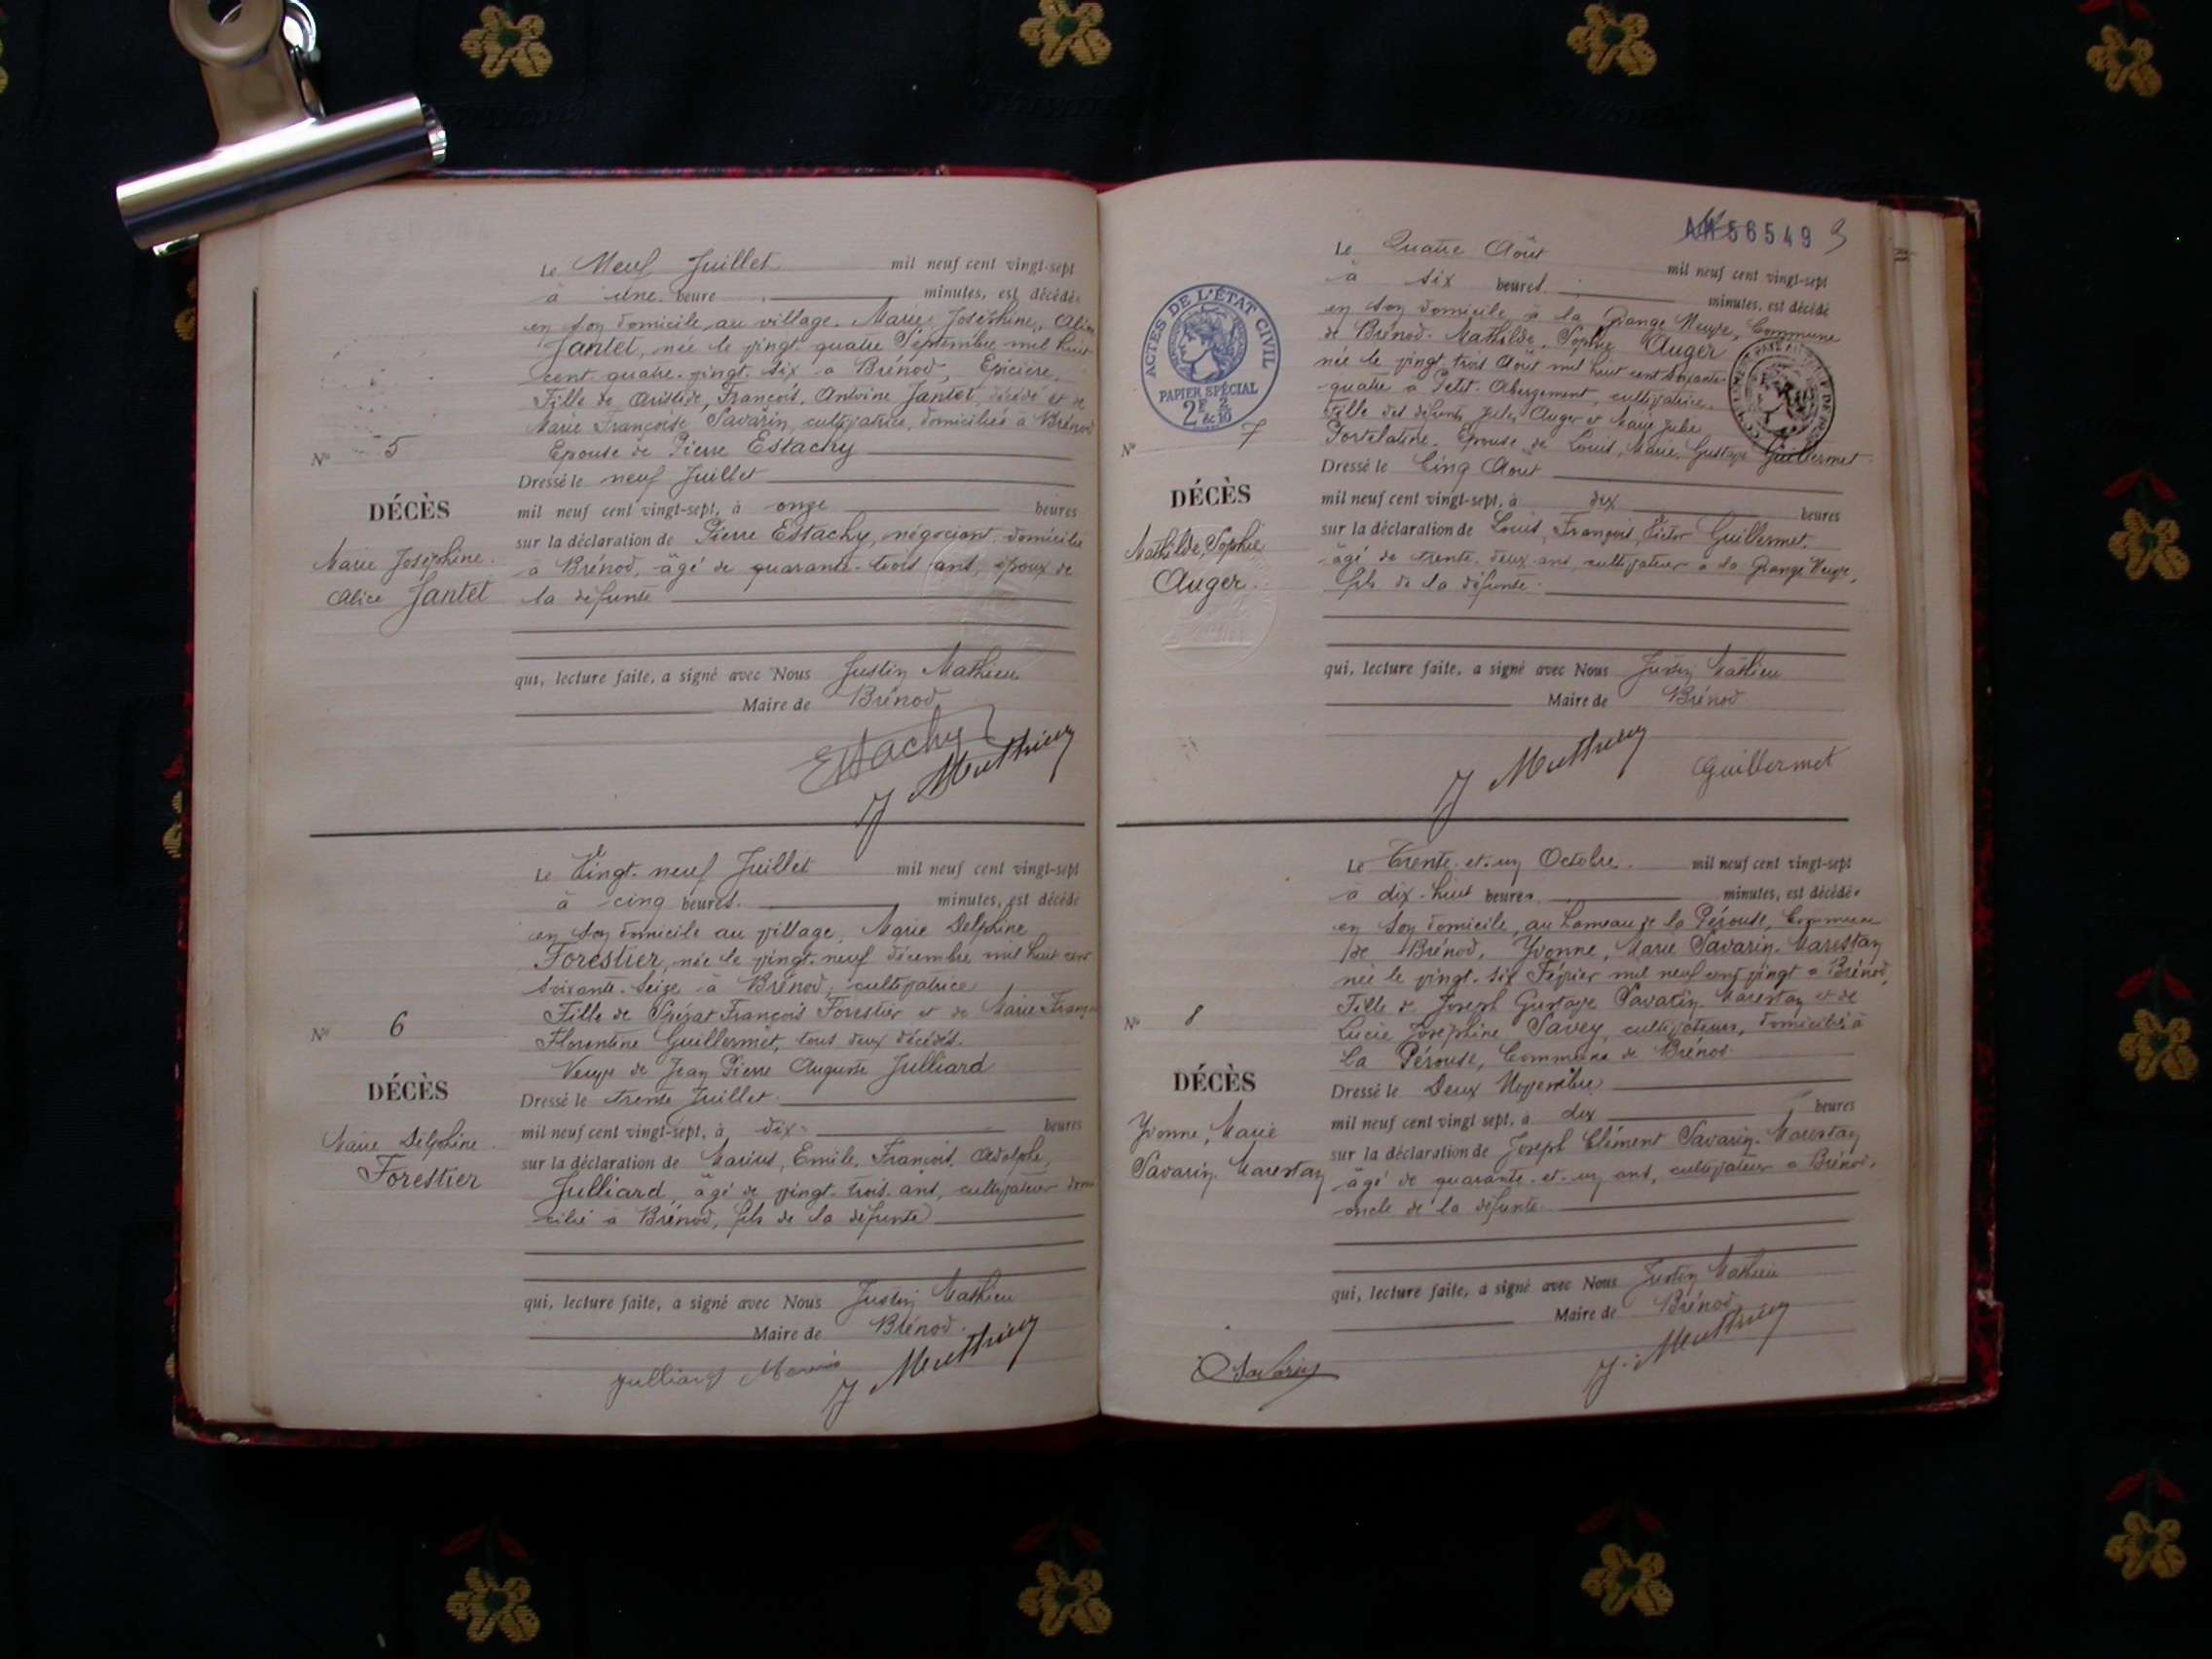 Le Neuf Juillet mil neuf cent vingt-sept
à une heure minutes, est décédée
en son domicile, au village, Marie, Joséphine, Alice
Jantet, née le vingt-quatre Septembre mil huit
cent quatre-vingt-six à Brénod, Epicière,
Fille de Aristide, François, Antoine Jantet, décédé et de
Marie Françoise Savarin, cultivatrice, domiciliés à Brénod
Epouse de Pierre Estachy
N° 5
Dressé le neuf Juillet
DÉCÈS
mil neuf cent vingt-sept, à onze heures
sur la déclaration de Pierre Estachy, négociant, domicilié
Marie Joséphine
à Brénod, âgé de quarante-trois ans, époux de
Alice Jantet
la défunte
qui, lecture faite, a signé avec Nous Justin Mathieu
Maire de Brénod
Estachy
J Mathieu
Le Vingt-neuf Juillet mil neuf cent vingt-sept
à cinq heures. minutes, est décédé
en son domicile au village, Marie Delphine
Forestier, née le vingt-neuf décembre mil huit cent
soixante-seize à Brénod, cultivatrice
Fille de Spérat François Forestier et de Marie
N° 6
Florentine Guillermet, tous deux décédés.
Veuve de Jean Pierre Auguste Julliard
DÉCÈS
Dressé le trente Juillet
mil neuf cent vingt-sept, à dix heures
Marie Delphine
sur la déclaration de Marius, Emile, François, Adolphe,
Forestier
Julliard, âgé de vingt-trois ans, cultivateur domi
cilié à Brénod, fils de la défunte
qui, lecture faite, a signé avec Nous Justin Mathieu
Maire de Brénod.
Julliard Marius
J Mathieu
AM 56549 3
Le Quatre Août mil neuf cent vingt-sept
à six heures minutes, est décédé
en son domicile à la Grange Neuve, Commune
de Brénod, Mathilde, Sophie Auger
née le vingt-trois Août mil huit cent soixante-
quatre à Petit-Abergement, cultivatrice,
Fille des défunts Jules Auger et Marie Julie
Epouse de Louis, Marie, Gustave Guillermet
ACTES DE L'ÉTAT CIVIL
PAPIER SPÉCIAL
2F 2/10
N° 7
Dressé le Cinq Août
DÉCÈS
mil neuf cent vingt-sept, à dix heures
Mathilde, Sophie
sur la déclaration de Louis, François, Victor Guillermet,
Auger
âgé de trente-deux ans, cultivateur à la Grange Neuve,
fils de la défunte
qui, lecture faite, a signé avec Nous Justin Mathieu
Maire de Brénod
J Mathieu
Guillermet
Le Trente-et-un Octobre mil neuf cent vingt-sept
à dix-huit heures minutes, est décédée
en son domicile, au hameau de la Pérouse, Commune
de Brénod, Yvonne, Marie Savarin-Marestan
née le vingt-six Février mil neuf cent vingt à Brénod,
Fille de Joseph Gustave Savarin-Marestan et de
N° 8
Lucie Joséphine Savey, cultivateurs, domiciliés à
La Pérouse, Commune de Brénod
DÉCÈS
Dressé le Deux Novembre
mil neuf cent vingt sept, à dix heures
Yvonne, Marie
sur la déclaration de Joseph Clément Savarin-Marestan
Savarin-Marestan
âgé de quarante-et-un ans, cultivateur à Brénod,
oncle de la défunte
qui, lecture faite, a signé avec Nous Justin Mathieu
Maire de Brénod
J. Mathieu
Savarin